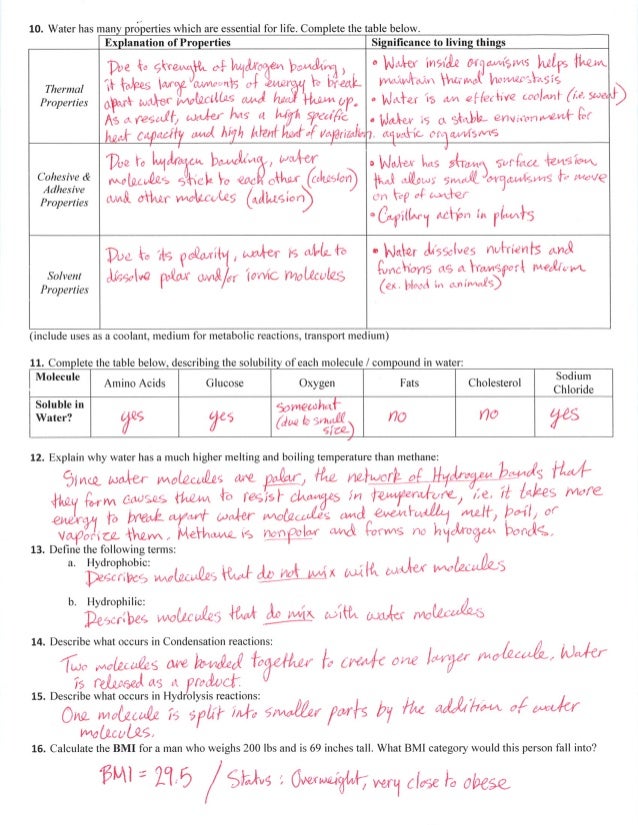 10. Water has many properties which are essential for life. Complete the table below.
Explanation of Properties
Significance to living things
Thermal
Properties
Due to strength of hydrogen bonding,
it takes large amounts of energy to break
apart water molecules and heat them up.
As a result, water has a high specific
heat capacity and high latent heat of vaporization.
• Water inside organisms helps them
maintain thermal homeostasis
• Water is an effective coolant (i.e. sweat)
• Water is a stable environment for
aquatic organisms
Cohesive &
Adhesive
Properties
Due to hydrogen bonding, water
molecules stick to each other (cohesion)
and other molecules (adhesion)
• Water has strong surface tension,
that allows small organisms to move
on top of water
• Capillary action in plants
Solvent
Properties
Due to its polarity, water is able to
dissolve polar and/or ionic molecules
• Water dissolves nutrients and
functions as a transport medium
(ex. blood in animals)
(include uses as a coolant, medium for metabolic reactions, transport medium)
11. Complete the table below, describing the solubility of each molecule / compound in water:
Molecule
Amino Acids
Glucose
Oxygen
Fats
Cholesterol
Sodium
Chloride
Soluble in
Water?
yes
yes
Somewhat
(due to small
size)
no
no
yes
12. Explain why water has a much higher melting and boiling temperature than methane:
Since water molecules are polar, the network of Hydrogen bonds that
they form causes them to resist changes in temperature, i.e. it takes more
energy to break apart water molecules and eventually melt, boil, or
vaporize them. Methane is nonpolar and forms no hydrogen bonds.
13. Define the following terms:
a. Hydrophobic:
Describes molecules that do not mix with water molecules
b. Hydrophilic:
Describes molecules that do mix with water molecules
14. Describe what occurs in Condensation reactions:
Two molecules are bonded together to create one larger molecule. Water
is released as a product.
15. Describe what occurs in Hydrolysis reactions:
One molecule is split into smaller parts by the addition of water
molecules.
16. Calculate the BMI for a man who weighs 200 lbs and is 69 inches tall. What BMI category would this person fall into?
BMI = 29.5 / Status : Overweight, very close to obese